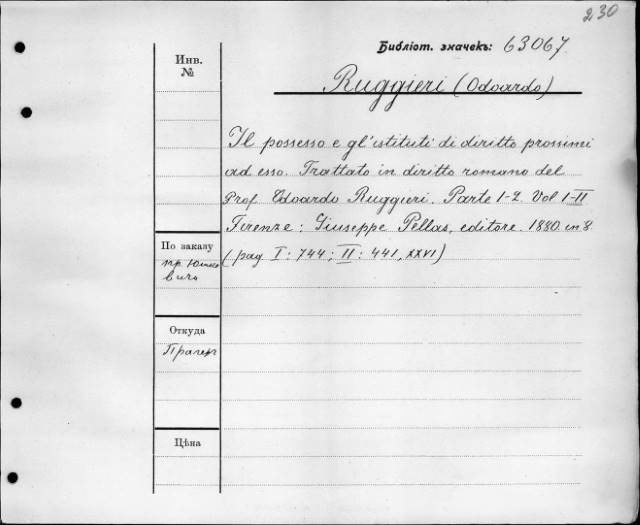 230
Библіот. значекъ: 63067
Инв.
№
Ruggieri (Odoardo)
Il possesso e gl'istituti di diritto prossimi
ad esso. Trattato in diritto romano del
Prof. Odoardo Ruggieri. Parte 1-2. Vol I-II
Firenze: Giuseppe Pellas, editore. 1880. in 8.
(pag I: 744; II: 441, XXVI)
По заказу
пр. Юшке
вича
Откуда
Прагеръ
Цѣна